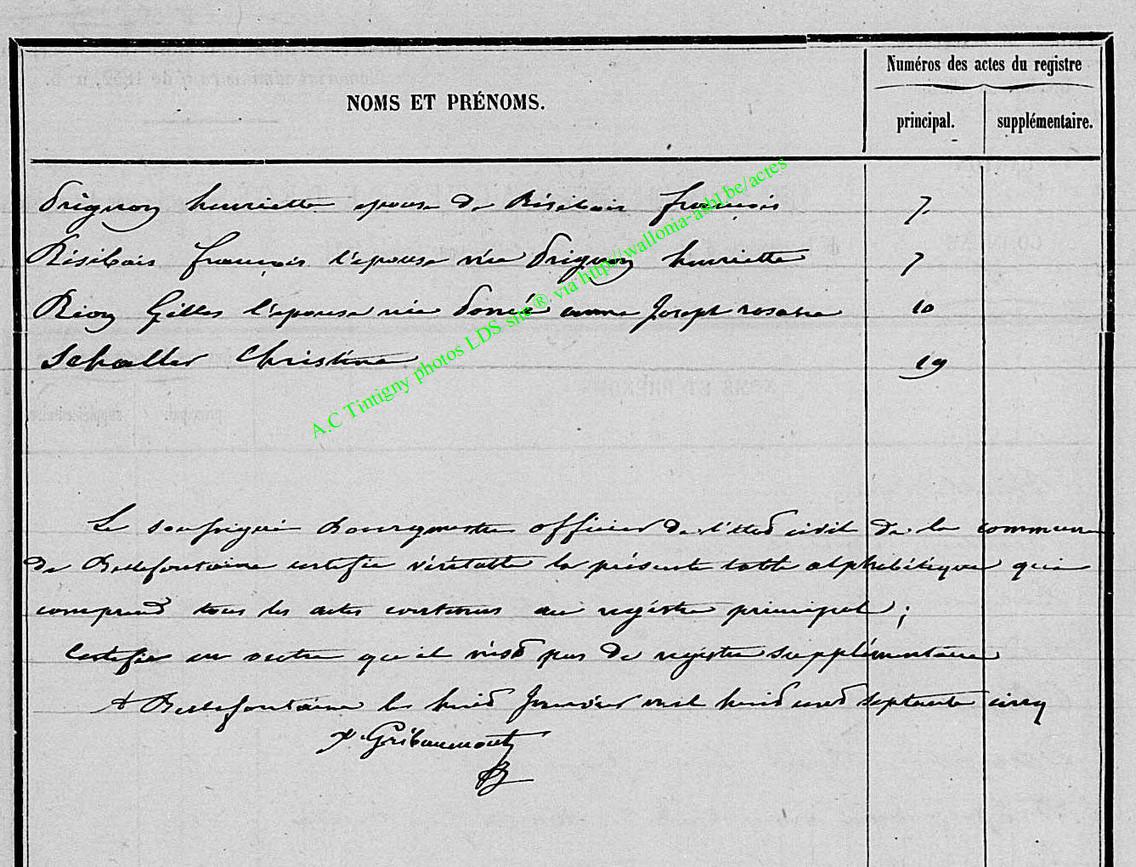 Numéros des actes du registre
NOMS ET PRÉNOMS.
principal. supplémentaire.
Prignon henriette epouse de Résibois françois 7
Résibois françois l'epouse née Prignon henriette 7
Rion Gilles l'epouse née anne Joseph rosalie 10
Schaller Christine 19
Le soussigné Bourgmestre officier de l'état civil de la commune
de Bellefontaine certifie véritable la présente table alphabétique qui
comprend tous les actes contenus au registre principal;
Certifie en outre qu'il n'est pas de registre supplémentaire
A Bellefontaine le huit Janvier mil huit cent septante cinq
Gribaumont
A.C Tintigny photos LDS site® via http//wallonia-asbl.be/actes